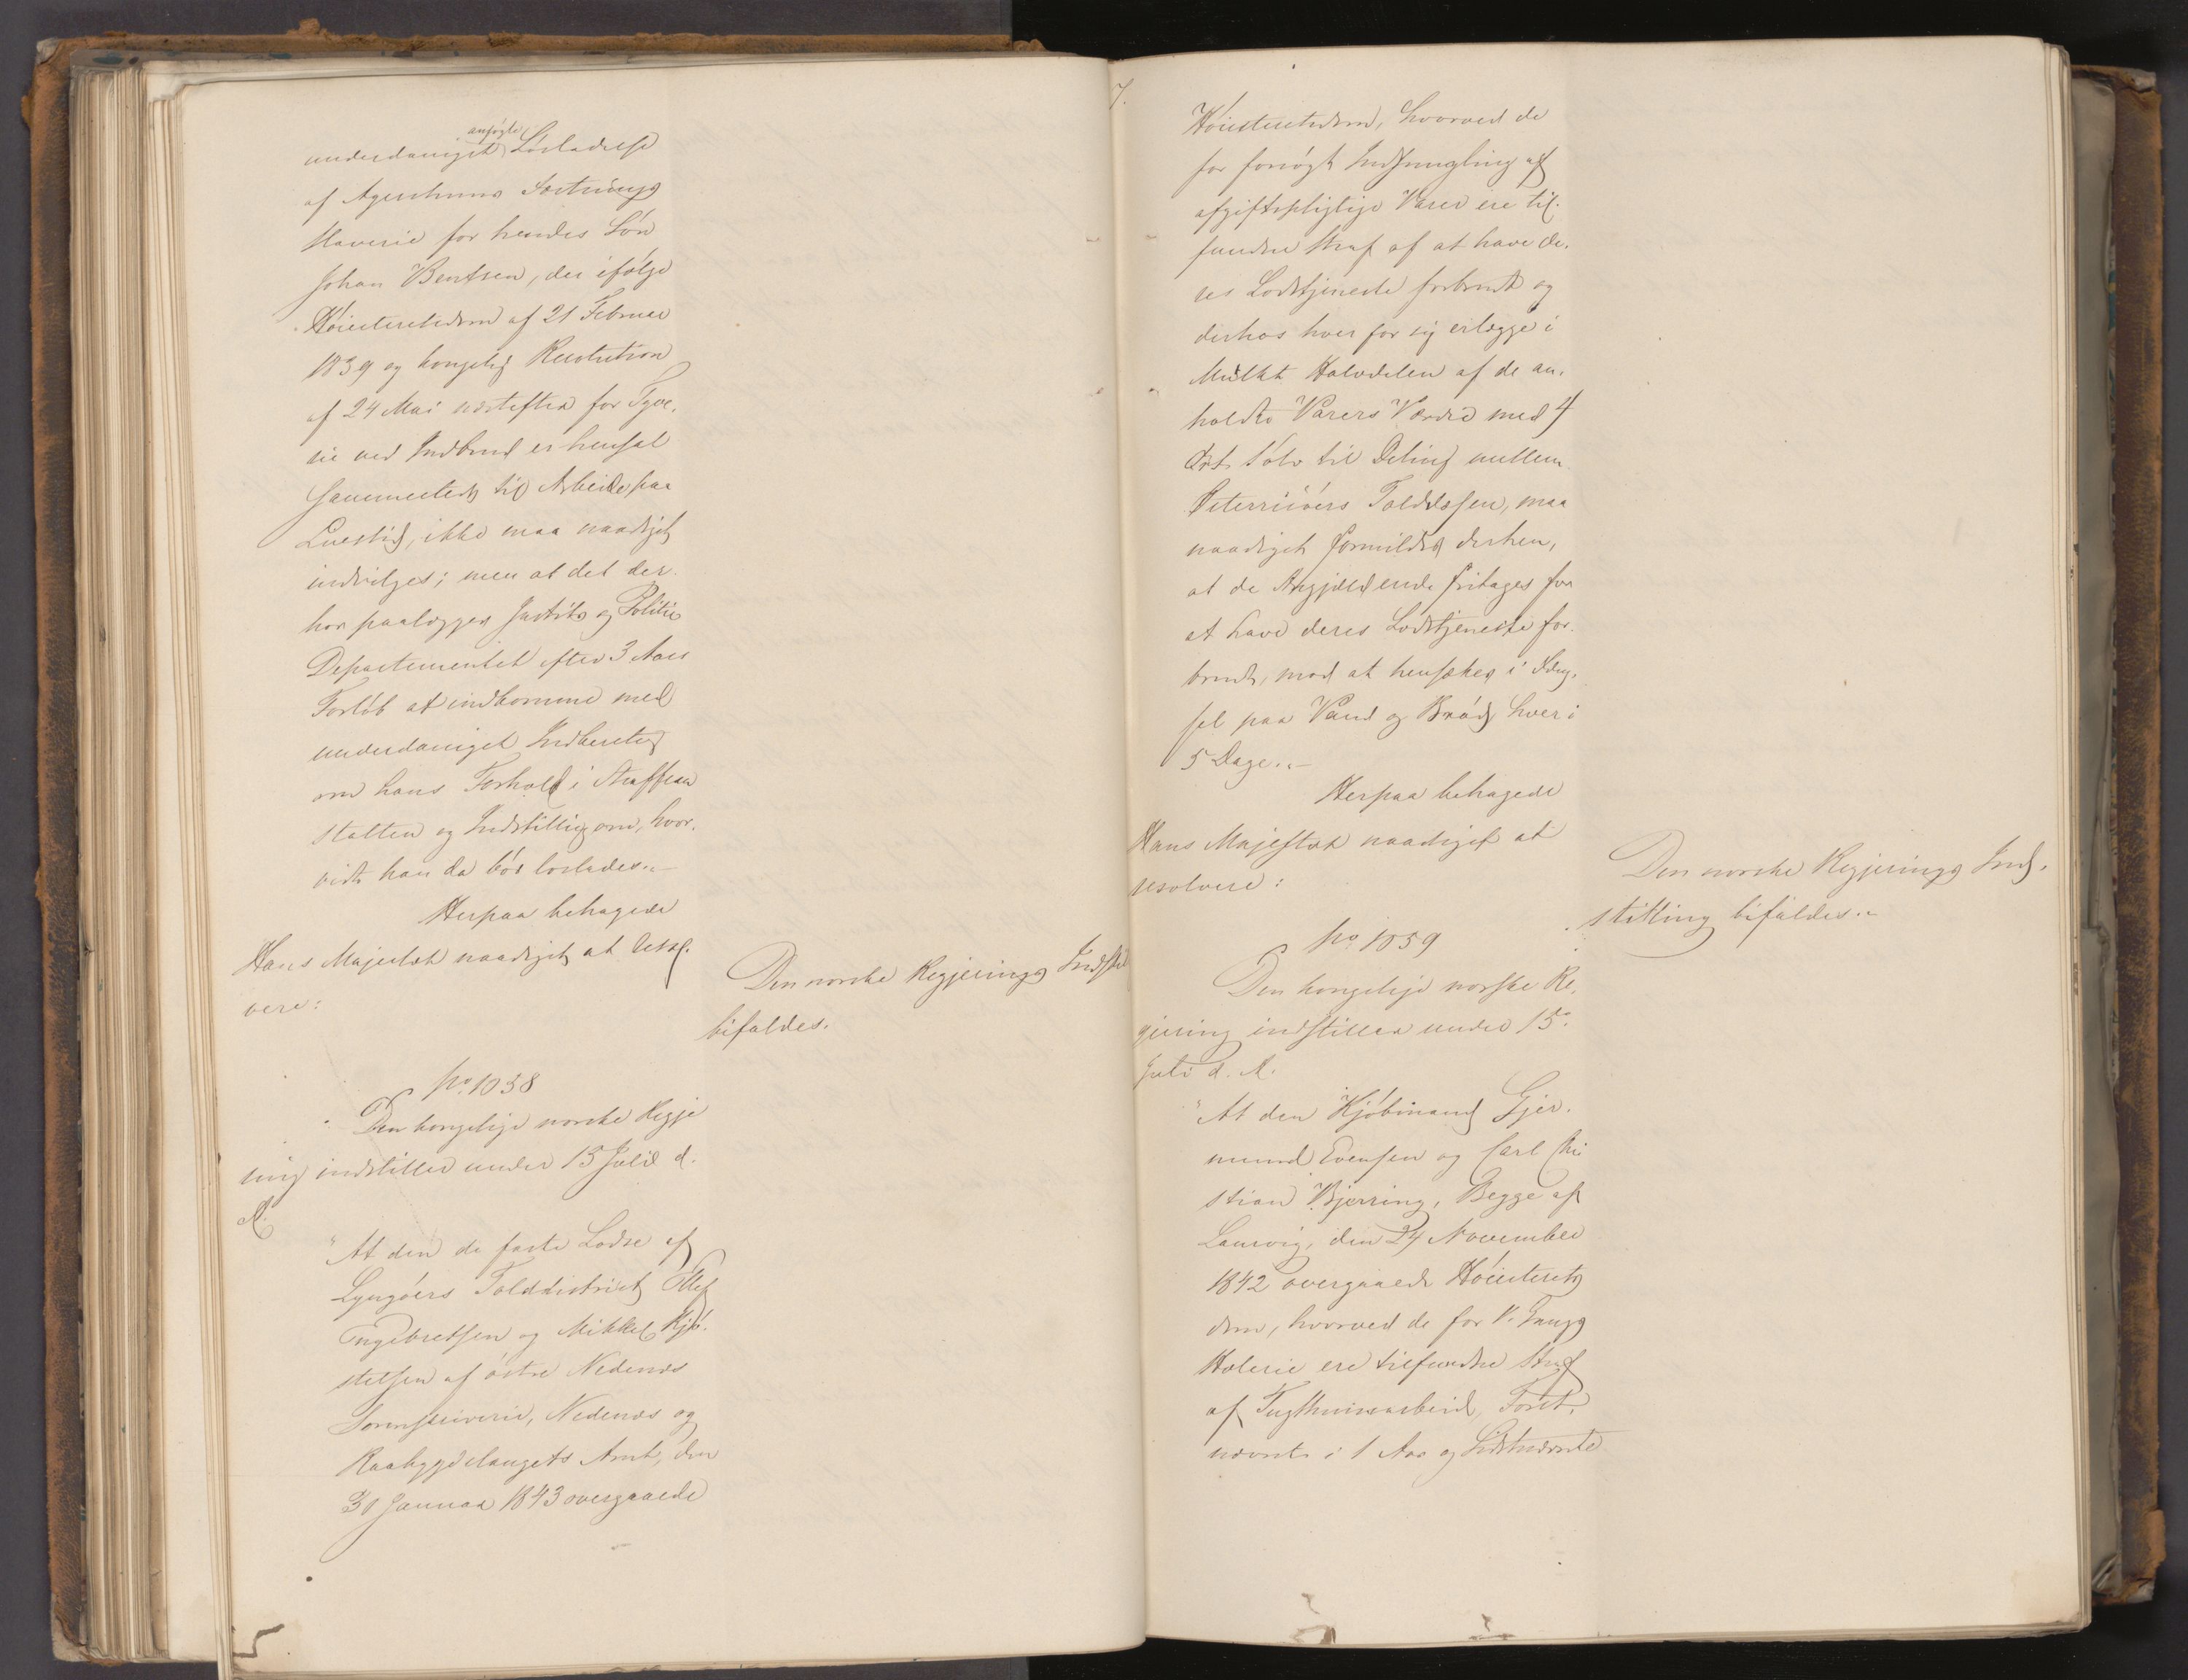 ansøgte
underdanigst Løsladelse
af Agershuus Fæstnings
Slaverie for hendes Søn
Johan Bentsen, der ifølge
Høiesteretsdom af 21 Februar
1839 og kongelig Resolution
af 24 Mai næstefter for Tyve-
rie ved Indbrud er hensat
sammesteds til Arbeide paa
Livstid, ikke maa naadigst
indvilges; men at det der-
hos paalægges Justits og Politie
Departementet efter 3 Aars
Forløb at indkomme med
underdanigst Indberetng
om hans Forhold i Straffean
stalten og Indstilling om, hvor-
vidt han da bør løslades."
Herpaa behagede
Hans Majestæt naadigst at resol-
vere:
Den norske Regjerings Indstil
bifaldes.
No 1038
Den kongelige norske Regje
ring indstiller under 15 Julii d.
A.
"At den de faste Lodse af
Lyngøers Tolddistrict Ellef
Engebretsen og Mikkel Kjø-
stelsen af østre Nedenæs
Sorenskriverie, Nedenæs og
Raabygdelaugets Amt, den
31 Januar 1843 overgaaede
7.
Høiesteretsdom, hvorved de
for forsøgt Indsmugling af
afgiftspligtige Varer ere til-
fundne Straf af at have de-
res Lodstjeneste forbrudt og
derhos hver for sig erlægge i
Mulkt Halvdelen af de an-
holdte Varers Værdie med 4
Ort Sølv til Deling mellem
Østerriisøers Toldvæsen, maa
naadigst formildes derhen,
at de Angjældende fritages for
at have deres Lodstjeneste for-
brudt, mod at hensættes i Fæng-
sel paa Vand og Brød, hver i
5 Dage."
Herpaa behagede
Hans Majestæt naadigst at
resolvere:
Den norske Regjerings Ind-
stilling bifaldes."
No 1059
Den kongelige norske Re-
gjering indstiller under 15.
Juli d. A.
"At den Kjøbmand Gjer-
mund Evensen og Carl Chri
stian Bjerring, Begge af
Laurvig, den 24 November
1842 overgaaede Høiesterets
dom, hvorved de for 1. Gangs
Hæleri ere tilfundne Straf
af Tugthuusarbeid, Først-
nævnte i 1 Aar og Sidstnævnte